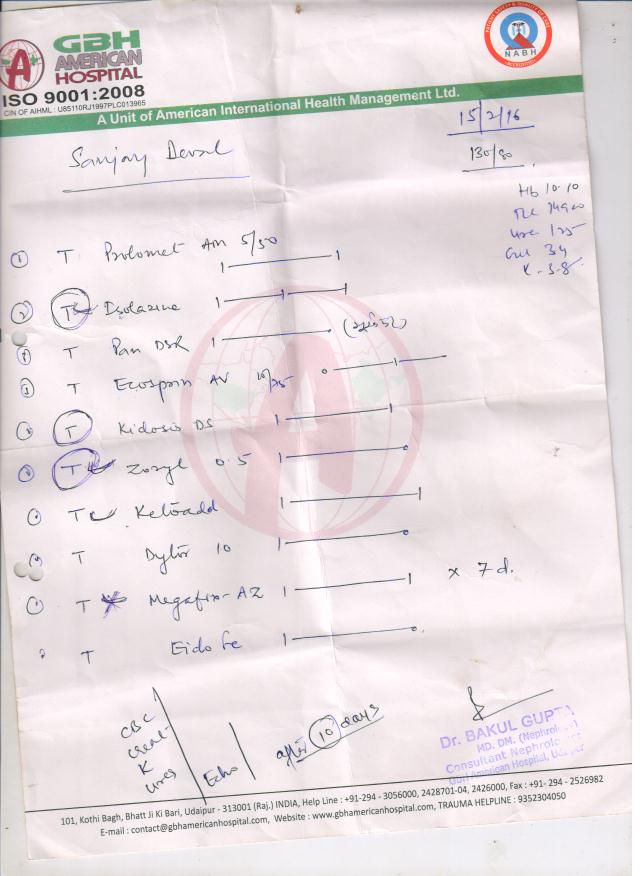 GBH
AMERICAN
HOSPITAL
ISO 9001:2008
CIN OF AIHML : U85110RJ1997PLC013965
A Unit of American International Health Management Ltd.
NABH
15/2/16
130/80
Sanjay
Hb 10.10
K - 3.8
① T Prolomet AM 5/50 1 — 1
② T Isolazine 1 — 1 — 1
T Pan DSR 1 —
T Ecosprin AV 0 — 1 —
T Kidosis DS 1 — 1
T Zoryl 0.5 1 — 0
T Ketoadd 1 — 1
T Dytor 10 1 — 0
T Megafix-AZ 1 — 1 x 7 d.
T Eido fe 1 — 0
CBC
creat
K
urea
Echo
after 10 days
Dr. BAKUL GUPTA
MD. DM. (Nephrology)
Consultant Nephrologist
GBH American Hospital, Udaipur
101, Kothi Bagh, Bhatt Ji Ki Bari, Udaipur - 313001 (Raj.) INDIA, Help Line : +91-294 - 3056000, 2428701-04, 2426000, Fax : +91- 294 - 2526982
E-mail : contact@gbhamericanhospital.com, Website : www.gbhamericanhospital.com, TRAUMA HELPLINE : 9352304050